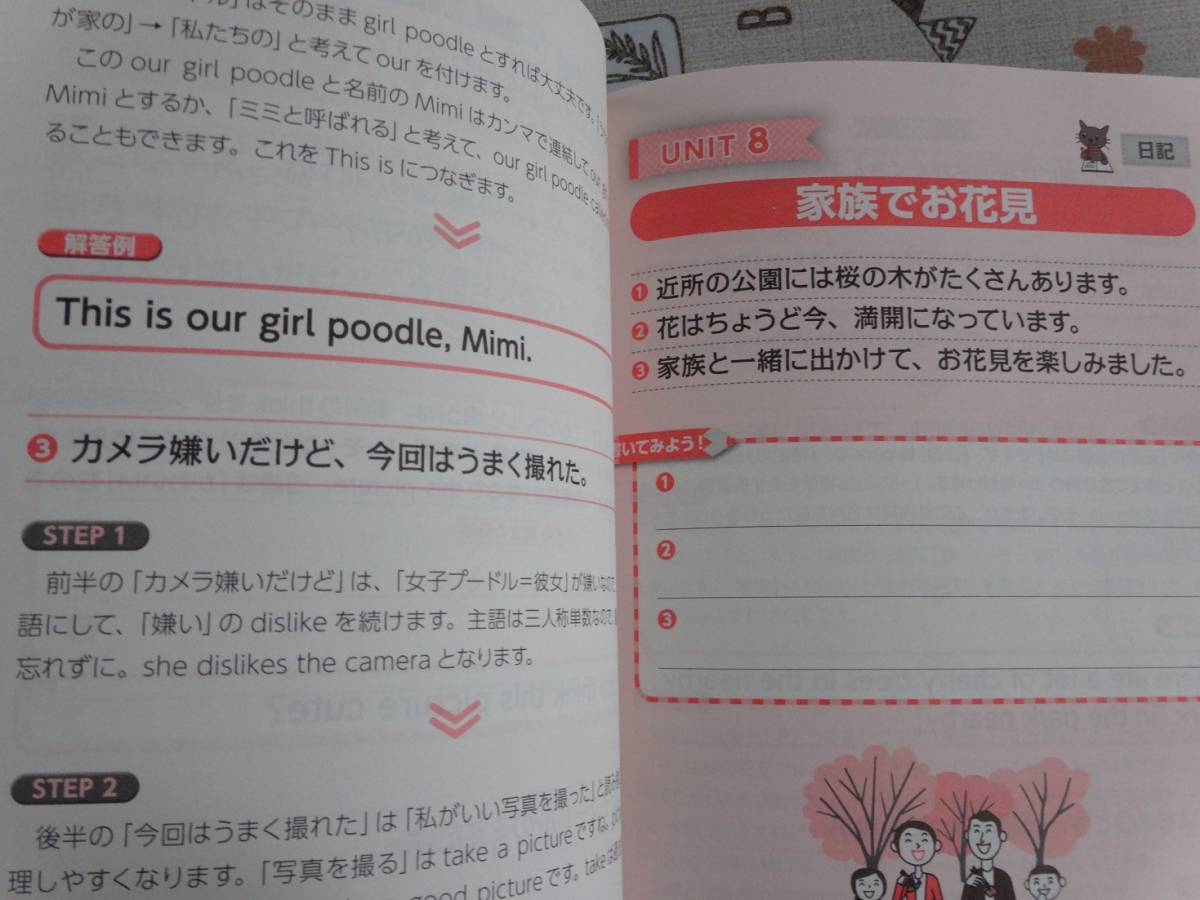 ドル」はそのまま girl poodle とすれば大丈夫です。
が家の」→「私たちの」と考えて our を付けます。
この our girl poodle と名前の Mimi はカンマで連結して our
Mimi とするか、「ミミと呼ばれる」と考えて、our girl poodle called
ることもできます。これを This is につなぎます。
解答例
This is our girl poodle, Mimi.
3 カメラ嫌いだけど、今回はうまく撮れた。
STEP 1
前半の「カメラ嫌いだけど」は、「女子プードル＝彼女」が嫌いなので
語にして、「嫌い」の dislike を続けます。主語は三人称単数なので、
忘れずに。she dislikes the camera となります。
STEP 2
後半の「今回はうまく撮れた」は「私がいい写真を撮った」と
理しやすくなります。「写真を撮る」は take a picture ですね。
good picture です。take は
UNIT 8
日記
家族でお花見
1 近所の公園には桜の木がたくさんあります。
2 花はちょうど今、満開になっています。
3 家族と一緒に出かけて、お花見を楽しみました。
書いてみよう！
1
2
3